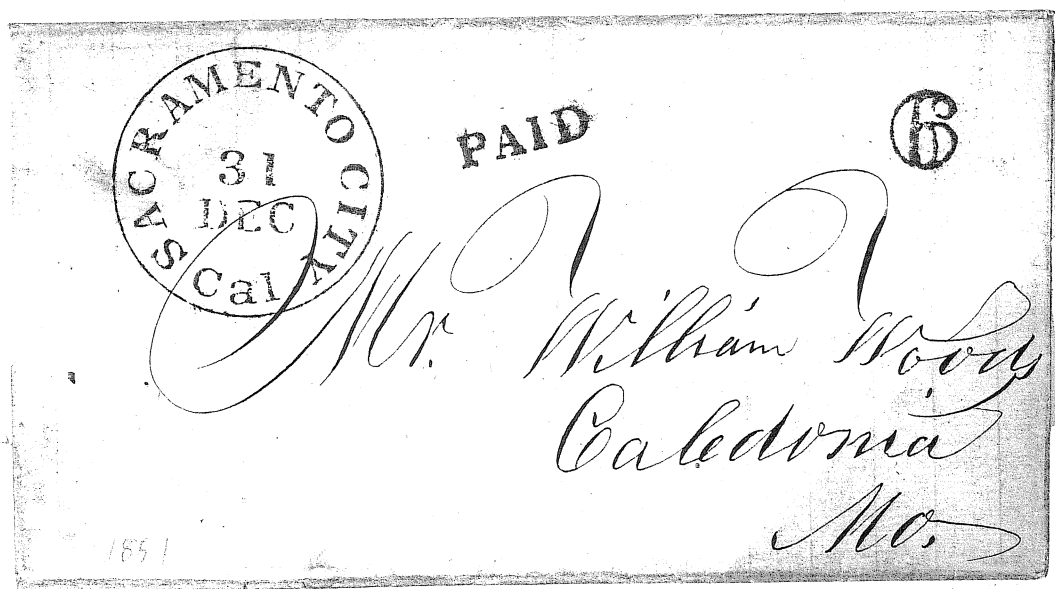 SACRAMENTO CITY
31
DEC
Cal
PAID
6
Mr. William Woods
Caledonia
Mo.
1851